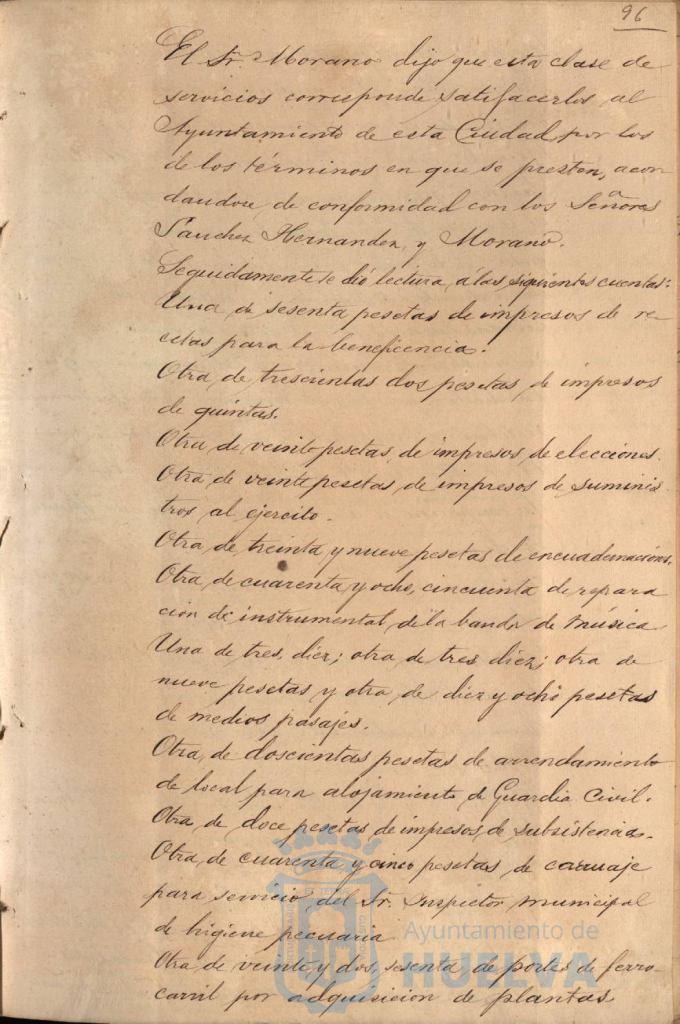 96
El Sr. Morano dijo que esta clase de
servicios corresponde satifacerlos al
Ayuntamiento de esta Ciudad por los
de los términos en que se presten, acor
dandose de conformidad con los Señores
Sanchez Hernandez y Morano.
Seguidamente se dió lectura a las siguientes cuentas:
Una de sesenta pesetas de impresos de re-
cetas para la beneficencia.
Otra de trescientas dos pesetas de impresos
de quintas.
Otra de veinte pesetas de impresos de elecciones.
Otra de veinte pesetas de impresos de suminis-
tros al ejercito.
Otra de treinta y nueve pesetas de encuadernaciónes.
Otra de cuarenta y ocho, cincuenta de repara
ción de instrumental de la banda de música
Una de tres, diez; otra de tres diez; otra de
nueve pesetas y otra de diez y ocho pesetas
de medios pasajes.
Otra de doscientas pesetas de arrendamiento
de local para alojamiento de Guardia Civil.
Otra de doce pesetas de impresos de subsistencia.
Otra de cuarenta y cinco pesetas de carruaje
para servicio del Sr. Inspector municipal
de higiene pecuaria
Otra de veinte y dos, sesenta de portes de ferro-
carril por adquisicion de plantas
Ayuntamiento de
HUELVA